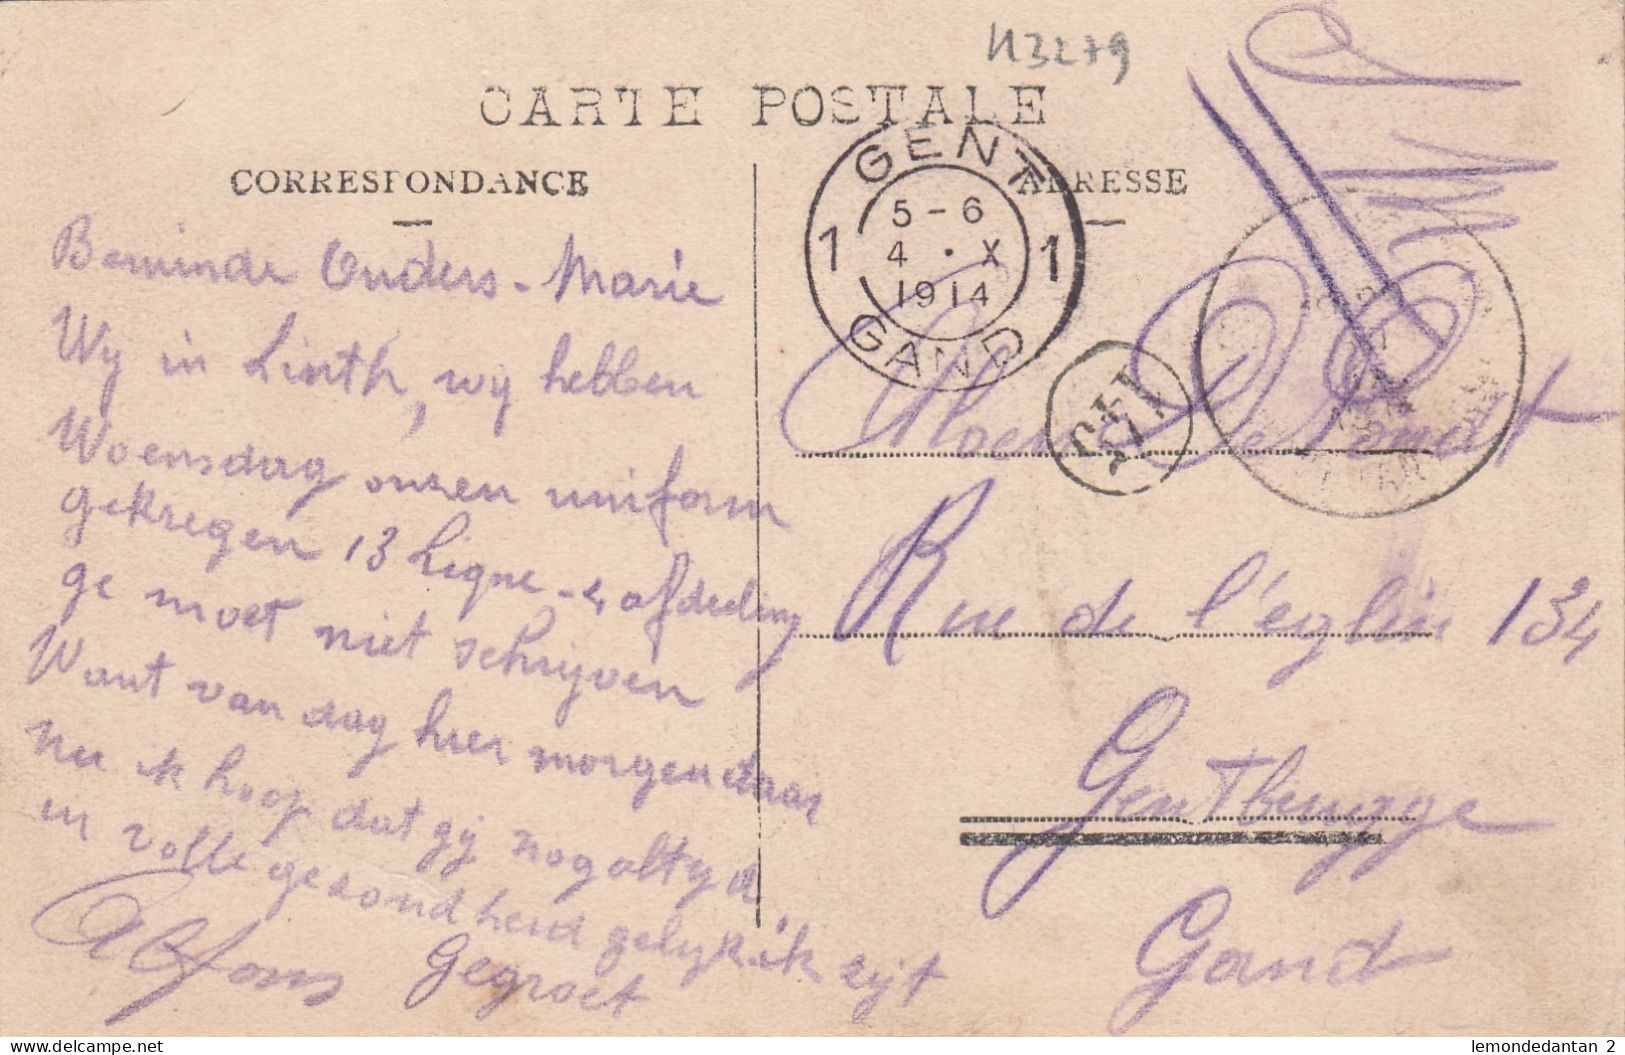 N3279
CARTE POSTALE
CORRESPONDANCE
ADRESSE
GENT
1 5-6 1
4 · X
1914
GAND
S.M.
Beminde Ouders - Marie
Wy in Linth, wy hebben
Woensdag onzen uniform
gekregen 13 Ligne - 4 afdeeling
ge moet niet schrijven
Want van dag hier morgen daar
nu ik hoop dat gij nog altyd
in volle gezondheid gelyk ik zyt
Alfons Gegroet
De
Rue de l'eglise 134
Gentbrugge
Gand
lemondedantan 2
www.delcampe.net